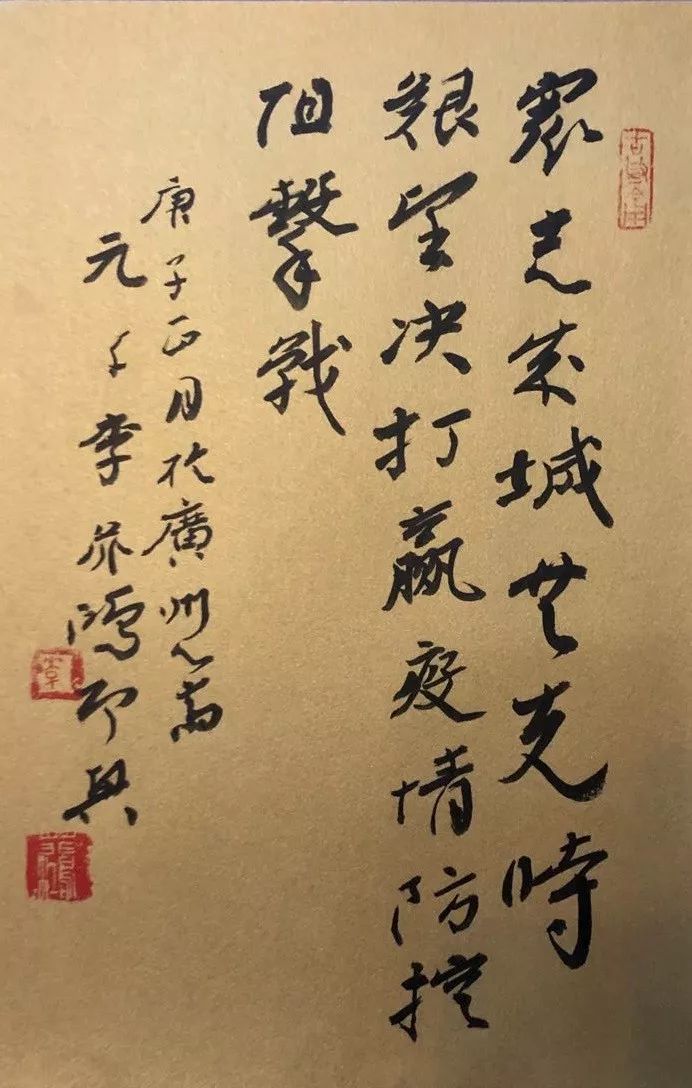 眾志成城共克時
艱坚决打赢疫情防控
阻擊戰
庚子正月於廣州
元子李鴻印興